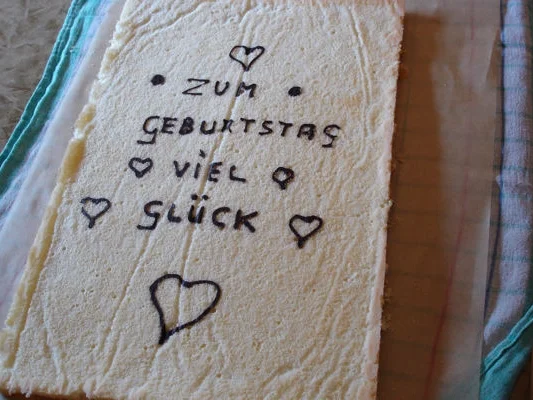 ZUM
GEBURTSTAG
ViEL
GLÜCK